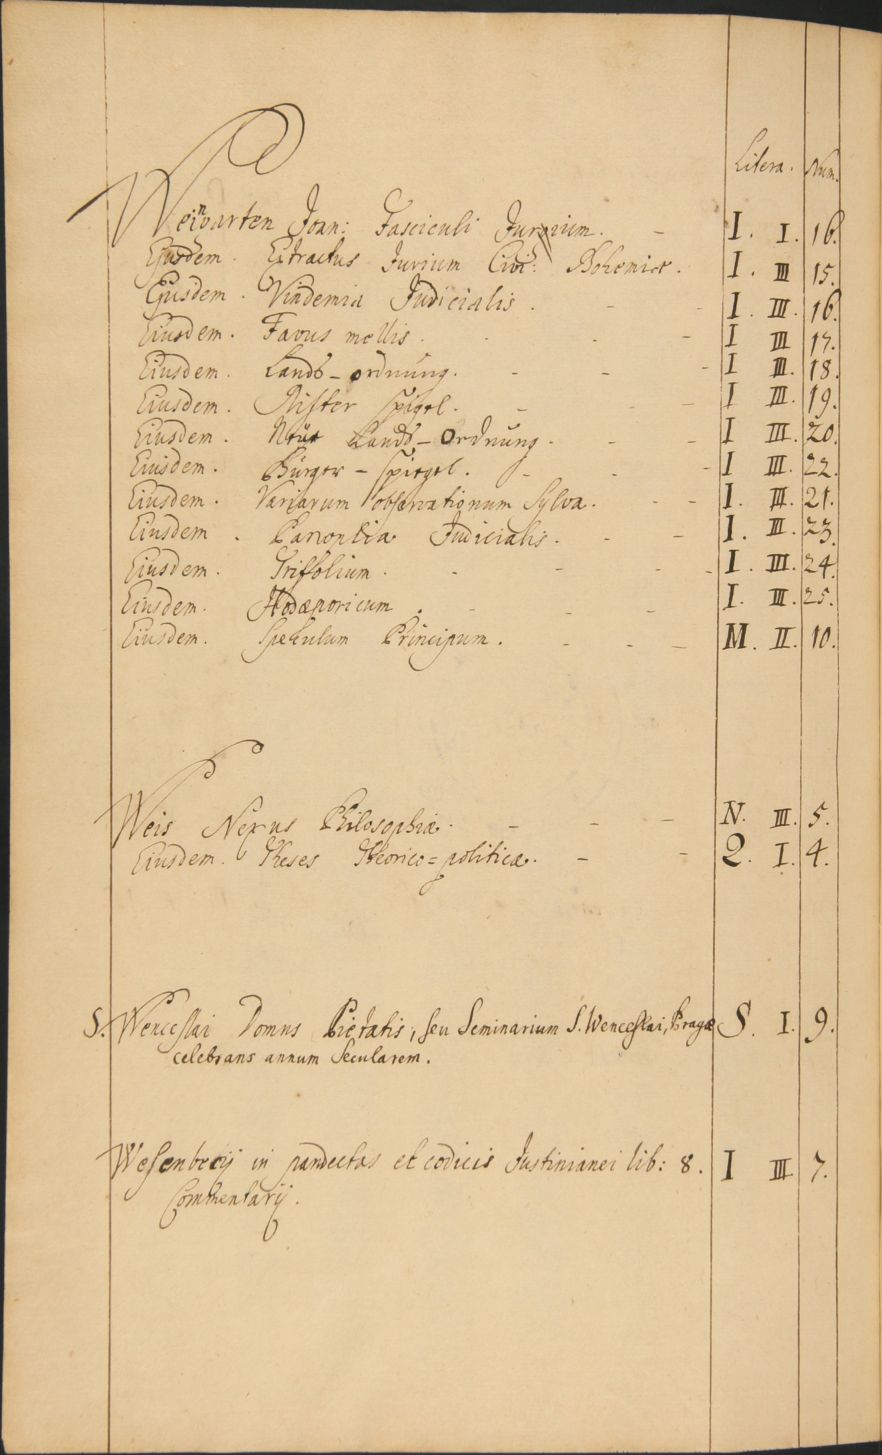 W
Litera. Num.
Weingarten Joan: Fasciculi Jurium. - I. I. 16.
Ejusdem. Extractus Jurium Civi: Bohemiæ. I. III 15.
Ejusdem. Vindemia Judicialis. - - I. III. 16.
Eiusdem. Favus mellis. - - - I III 17.
Eiusdem. Lands-ordnung. - - - I III. 18.
Eiusdem. Rister Spigel. - - - I III. 19.
Eiusdem. Neüe Lands-Ordnung. - - I III. 20.
Eiusdem. Bürger-Spiegel. - - - I III. 22.
Eiusdem. Variarum observationum Sylva. - - I. III. 21.
Eiusdem. Judicialis. - - I. III. 23.
Eiusdem. Trifolium. - - - - I. III. 24.
Eiusdem. Hodæporicum. - - - I. III. 25.
Eiusdem. Spekulum Principum. - - - M. II. 10.
Weis Nexus Philosophiæ. - - - N. III. 5.
Eiusdem. Theses theorico=politicæ. - - Q. I. 4.
S. Wenceslai Domus Pietatis, seu Seminarium S. Wenceslai, Pragæ S. I. 9.
celebrans annum Secularem.
Wesenbecij in pandectas et codicis Justinianei lib: 8. I III 7.
Commentarij.